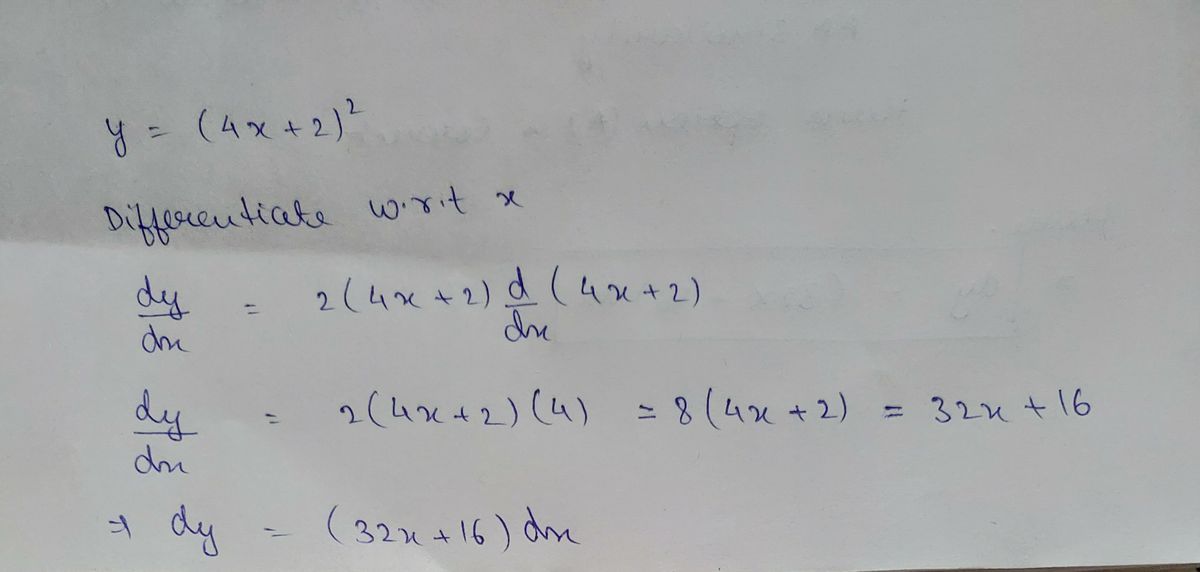 y = (4x + 2)²
Differentiate w.r.t x
dy/dx = 2(4x + 2) d/dx (4x + 2)
dy/dx = 2(4x + 2)(4) = 8(4x + 2) = 32x + 16
⇒ dy = (32x + 16) dx